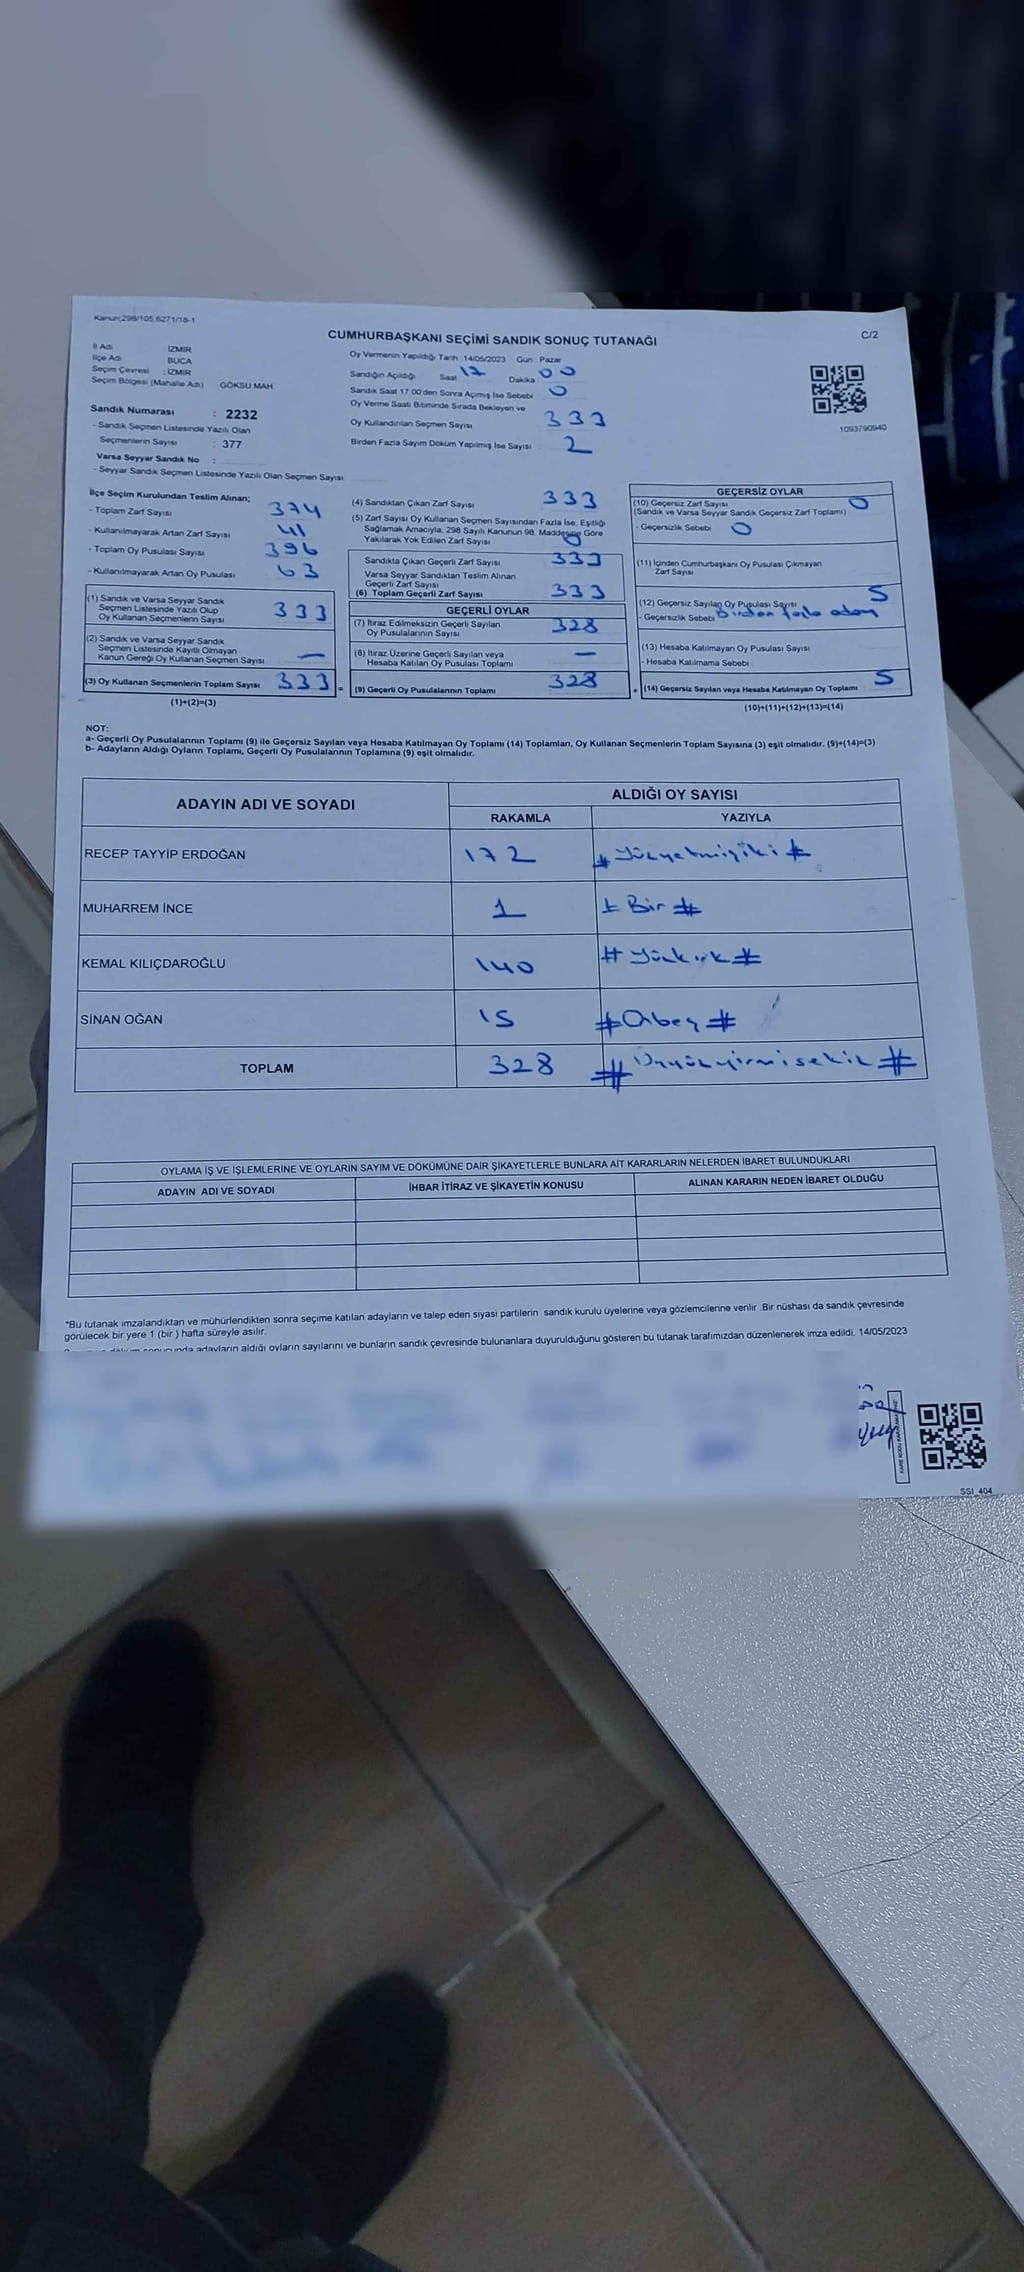 Kanun;298/105;6271/18-1
C/2
CUMHURBAŞKANI SEÇİMİ SANDIK SONUÇ TUTANAĞI
İl Adı : İZMİR
İlçe Adı : BUCA
Seçim Çevresi : İZMİR
Seçim Bölgesi (Mahalle Adı) GÖKSU MAH.
Sandık Numarası : 2232
- Sandık Seçmen Listesinde Yazılı Olan
Seçmenlerin Sayısı : 377
Varsa Seyyar Sandık No :
- Seyyar Sandık Seçmen Listesinde Yazılı Olan Seçmen Sayısı
Oy Vermenin Yapıldığı Tarih 14/05/2023 Gün : Pazar
Sandığın Açıldığı Saat 17 Dakika 00
Sandık Saat 17:00'den Sonra Açılmış İse Sebebi 0
Oy Verme Saati Bitiminde Sırada Bekleyen ve
Oy Kullandırılan Seçmen Sayısı 333
Birden Fazla Sayım Döküm Yapılmış İse Sayısı 2
1093790940
İlçe Seçim Kurulundan Teslim Alınan;
- Toplam Zarf Sayısı 374
- Kullanılmayarak Artan Zarf Sayısı 41
- Toplam Oy Pusulası Sayısı 396
- Kullanılmayarak Artan Oy Pusulası 63
(1) Sandık ve Varsa Seyyar Sandık
Seçmen Listesinde Yazılı Olup
Oy Kullanan Seçmenlerin Sayısı 333
(2) Sandık ve Varsa Seyyar Sandık
Seçmen Listesinde Kayıtlı Olmayan
Kanun Gereği Oy Kullanan Seçmen Sayısı —
(3) Oy Kullanan Seçmenlerin Toplam Sayısı 333 =
(1)+(2)=(3)
(4) Sandıktan Çıkan Zarf Sayısı 333
(5) Zarf Sayısı Oy Kullanan Seçmen Sayısından Fazla İse, Eşitliği
Sağlamak Amacıyla, 298 Sayılı Kanunun 98. Maddesine Göre
Yakılarak Yok Edilen Zarf Sayısı 0
Sandıkta Çıkan Geçerli Zarf Sayısı 333
Varsa Seyyar Sandıktan Teslim Alınan
Geçerli Zarf Sayısı
(6) Toplam Geçerli Zarf Sayısı 333
GEÇERLİ OYLAR
(7) İtiraz Edilmeksizin Geçerli Sayılan
Oy Pusulalarının Sayısı 328
(8) İtiraz Üzerine Geçerli Sayılan veya
Hesaba Katılan Oy Pusulası Toplamı —
(9) Geçerli Oy Pusulalarının Toplamı 328 +
GEÇERSİZ OYLAR
(10) Geçersiz Zarf Sayısı 0
(Sandık ve Varsa Seyyar Sandık Geçersiz Zarf Toplamı)
- Geçersizlik Sebebi 0
(11) İçinden Cumhurbaşkanı Oy Pusulası Çıkmayan
Zarf Sayısı
(12) Geçersiz Sayılan Oy Pusulası Sayısı 5
- Geçersizlik Sebebi Birden fazla aday
(13) Hesaba Katılmayan Oy Pusulası Sayısı
- Hesaba Katılmama Sebebi
(14) Geçersiz Sayılan veya Hesaba Katılmayan Oy Toplamı 5
(10)+(11)+(12)+(13)=(14)
NOT:
a- Geçerli Oy Pusulalarının Toplamı (9) ile Geçersiz Sayılan veya Hesaba Katılmayan Oy Toplamı (14) Toplamları, Oy Kullanan Seçmenlerin Toplam Sayısına (3) eşit olmalıdır. (9)+(14)=(3)
b- Adayların Aldığı Oyların Toplamı, Geçerli Oy Pusulalarının Toplamına (9) eşit olmalıdır.
ADAYIN ADI VE SOYADI ALDIĞI OY SAYISI
RAKAMLA YAZIYLA
RECEP TAYYİP ERDOĞAN 172 # Yüzyetmişiki #
MUHARREM İNCE 1 # Bir #
KEMAL KILIÇDAROĞLU 140 # Yüzkırk #
SİNAN OĞAN 15 # Onbeş #
TOPLAM 328 # Üçyüzyirmisekiz #
OYLAMA İŞ VE İŞLEMLERİNE VE OYLARIN SAYIM VE DÖKÜMÜNE DAİR ŞİKAYETLERLE BUNLARA AİT KARARLARIN NELERDEN İBARET BULUNDUKLARI
ADAYIN ADI VE SOYADI İHBAR İTİRAZ VE ŞİKAYETİN KONUSU ALINAN KARARIN NEDEN İBARET OLDUĞU
*Bu tutanak imzalandıktan ve mühürlendikten sonra seçime katılan adayların ve talep eden siyasi partilerin sandık kurulu üyelerine veya gözlemcilerine verilir. Bir nüshası da sandık çevresinde
görülecek bir yere 1 (bir ) hafta süreyle asılır.
adayların aldığı oyların sayılarını ve bunların sandık çevresinde bulunanlara duyurulduğunu gösteren bu tutanak tarafımızdan düzenlenerek imza edildi. 14/05/2023
SSI_404